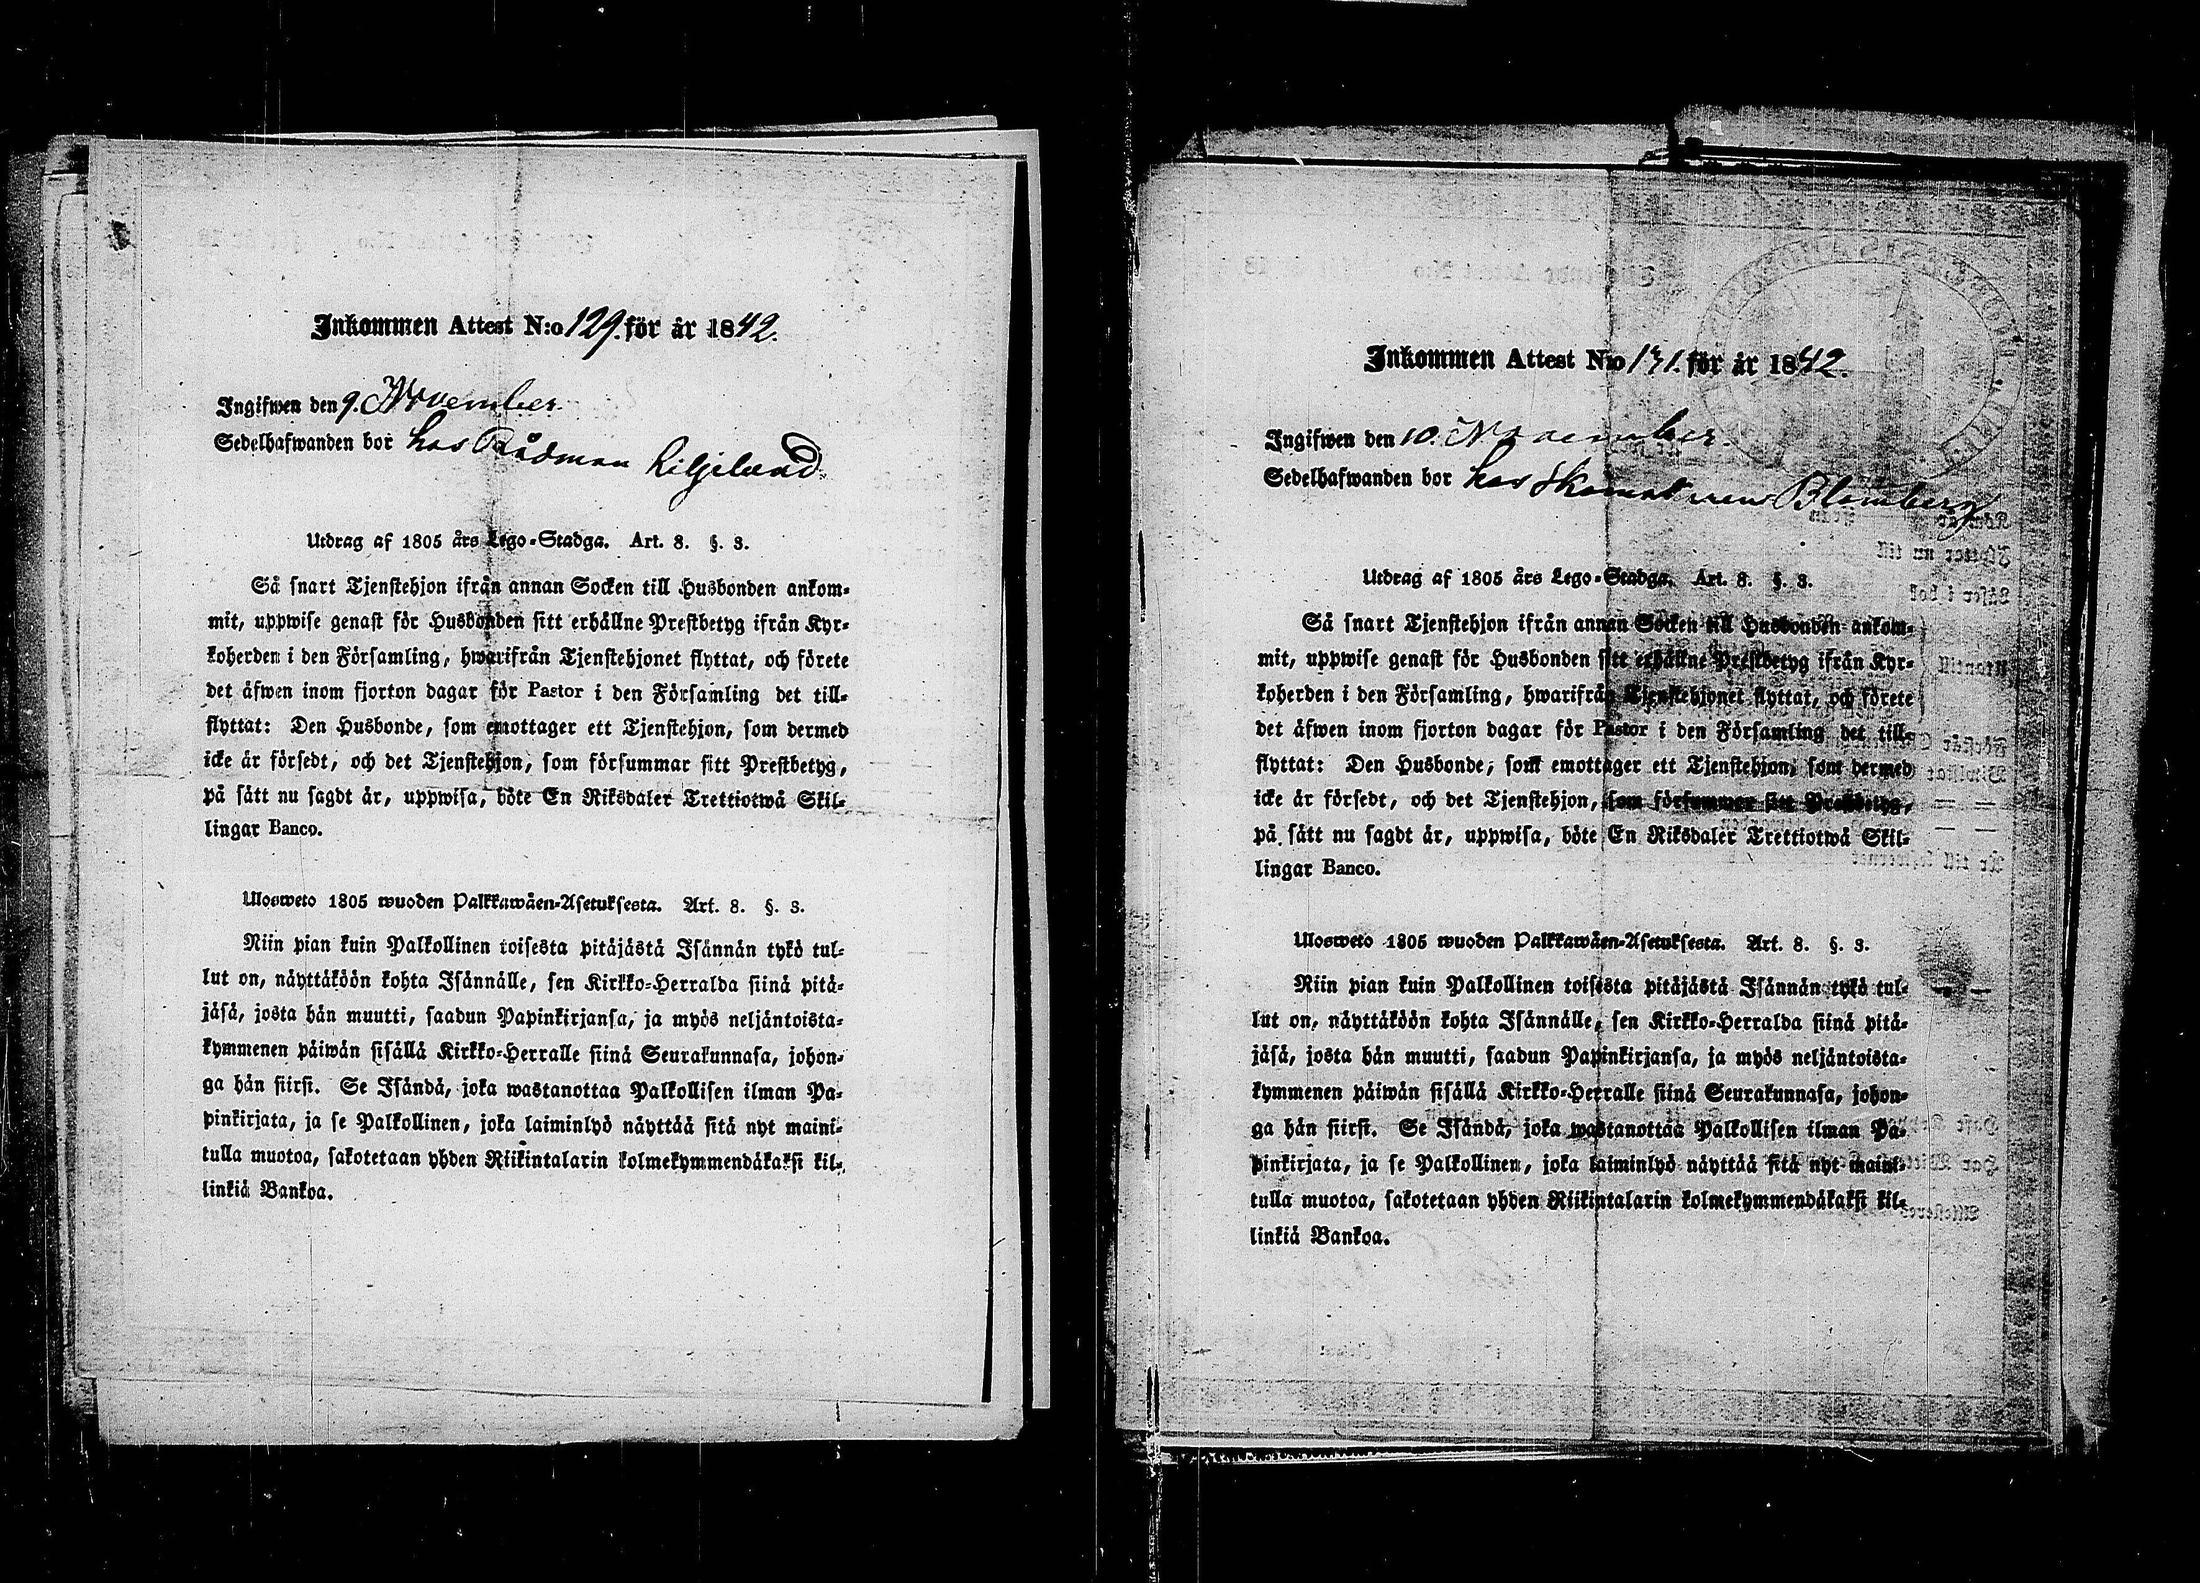 Inkommen Attest N:o 129. för år 1842.
Ingifwen den 9. November.
Sedelhafwanden bor hos Rådman Liljelund.
Utdrag af 1805 års Lego-Stadga. Art. 8. §. 3.
Så snart Tjenstehjon ifrån annan Socken till Husbonden ankom-
mit, uppwise genast för Husbonden sitt erhållne Prestbetyg ifrån Kyr-
koherden i den Församling, hwarifrån Tjenstehjonet flyttat, och förete
det äfwen inom fjorton dagar för Pastor i den Församling det till-
flyttat: Den Husbonde, som emottager ett Tjenstehjon, som dermed
icke är försedt, och det Tjenstehjon, som försummar sitt Prestbetyg,
på sätt nu sagdt är, uppwisa, böte En Riksdaler Trettiotwå Skil-
lingar Banco.
Ulosweto 1805 wuoden Palkkawäen-Asetuksesta. Art. 8. §. 3.
Niin pian kuin Palkollinen toisesta pitäjästä Isännän tykö tul-
lut on, näyttäköön kohta Isännälle, sen Kirkko-Herralda siinä pitä-
jäsä, josta hän muutti, saadun Papinkirjansa, ja myös neljäntoista-
kymmenen päiwän sisällä Kirkko-Herralle siinä Seurakunnasa, johon-
ga hän siirsi. Se Isändä, joka wastanottaa Palkollisen ilman Pa-
pinkirjata, ja se Palkollinen, joka laiminlyö näyttää sitä nyt maini-
tulla muotoa, sakotetaan yhden Riikintalarin kolmekymmendäkaksi kil-
linkiä Bankoa.
Inkommen Attest N:o 131. för år 1842.
Ingifwen den 10. November.
Sedelhafwanden bor hos Blomberg
Utdrag af 1805 års Lego-Stadga. Art. 8. §. 3.
Så snart Tjenstehjon ifrån annan Socken till Husbonden ankom-
mit, uppwise genast för Husbonden sitt erhållne Prestbetyg ifrån Kyr-
koherden i den Församling, hwarifrån Tjenstehjonet flyttat, och förete
det äfwen inom fjorton dagar för Pastor i den Församling det till-
flyttat: Den Husbonde, som emottager ett Tjenstehjon, som dermed
icke är försedt, och det Tjenstehjon, som försummar sitt Prestbetyg,
på sätt nu sagdt är, uppwisa, böte En Riksdaler Trettiotwå Skil-
lingar Banco.
Ulosweto 1805 wuoden Palkkawäen-Asetuksesta. Art. 8. §. 3.
Niin pian kuin Palkollinen toisesta pitäjästä Isännän tykö tul-
lut on, näyttäköön kohta Isännälle, sen Kirkko-Herralda siinä pitä-
jäsä, josta hän muutti, saadun Papinkirjansa, ja myös neljäntoista-
kymmenen päiwän sisällä Kirkko-Herralle siinä Seurakunnasa, johon-
ga hän siirsi. Se Isändä, joka wastanottaa Palkollisen ilman Pa-
pinkirjata, ja se Palkollinen, joka laiminlyö näyttää sitä nyt maini-
tulla muotoa, sakotetaan yhden Riikintalarin kolmekymmendäkaksi kil-
linkiä Bankoa.